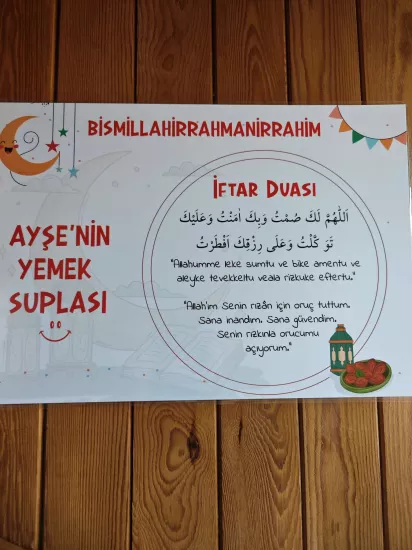 BİSMİLLAHİRRAHMANİRRAHİM
AYŞE'NİN
YEMEK
SUPLASI
İFTAR DUASI
اَللّٰهُمَّ لَكَ صُمْتُ وَبِكَ اٰمَنْتُ وَعَلَيْكَ
تَوَكَّلْتُ وَعَلَى رِزْقِكَ اَفْطَرْتُ
"Allahumme leke sumtu ve bike amentu ve
aleyke tevekkeltu veala rızkuke eftertu."
"Allah'im Senin rızân için oruç tuttum.
Sana inandım. Sana güvendim.
Senin rızkınla orucumu
açıyorum."